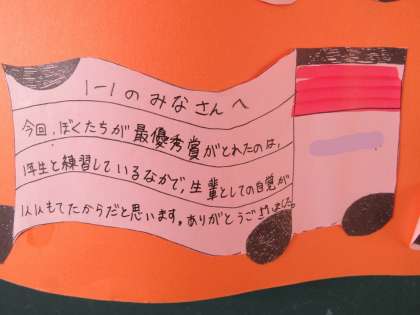 1-1のみなさんへ
今回、ぼくたちが最優秀賞がとれたのは、
1年生と練習しているなかで、生輩としての自覚が
1人1人もてたからだと思います。ありがとうございました。